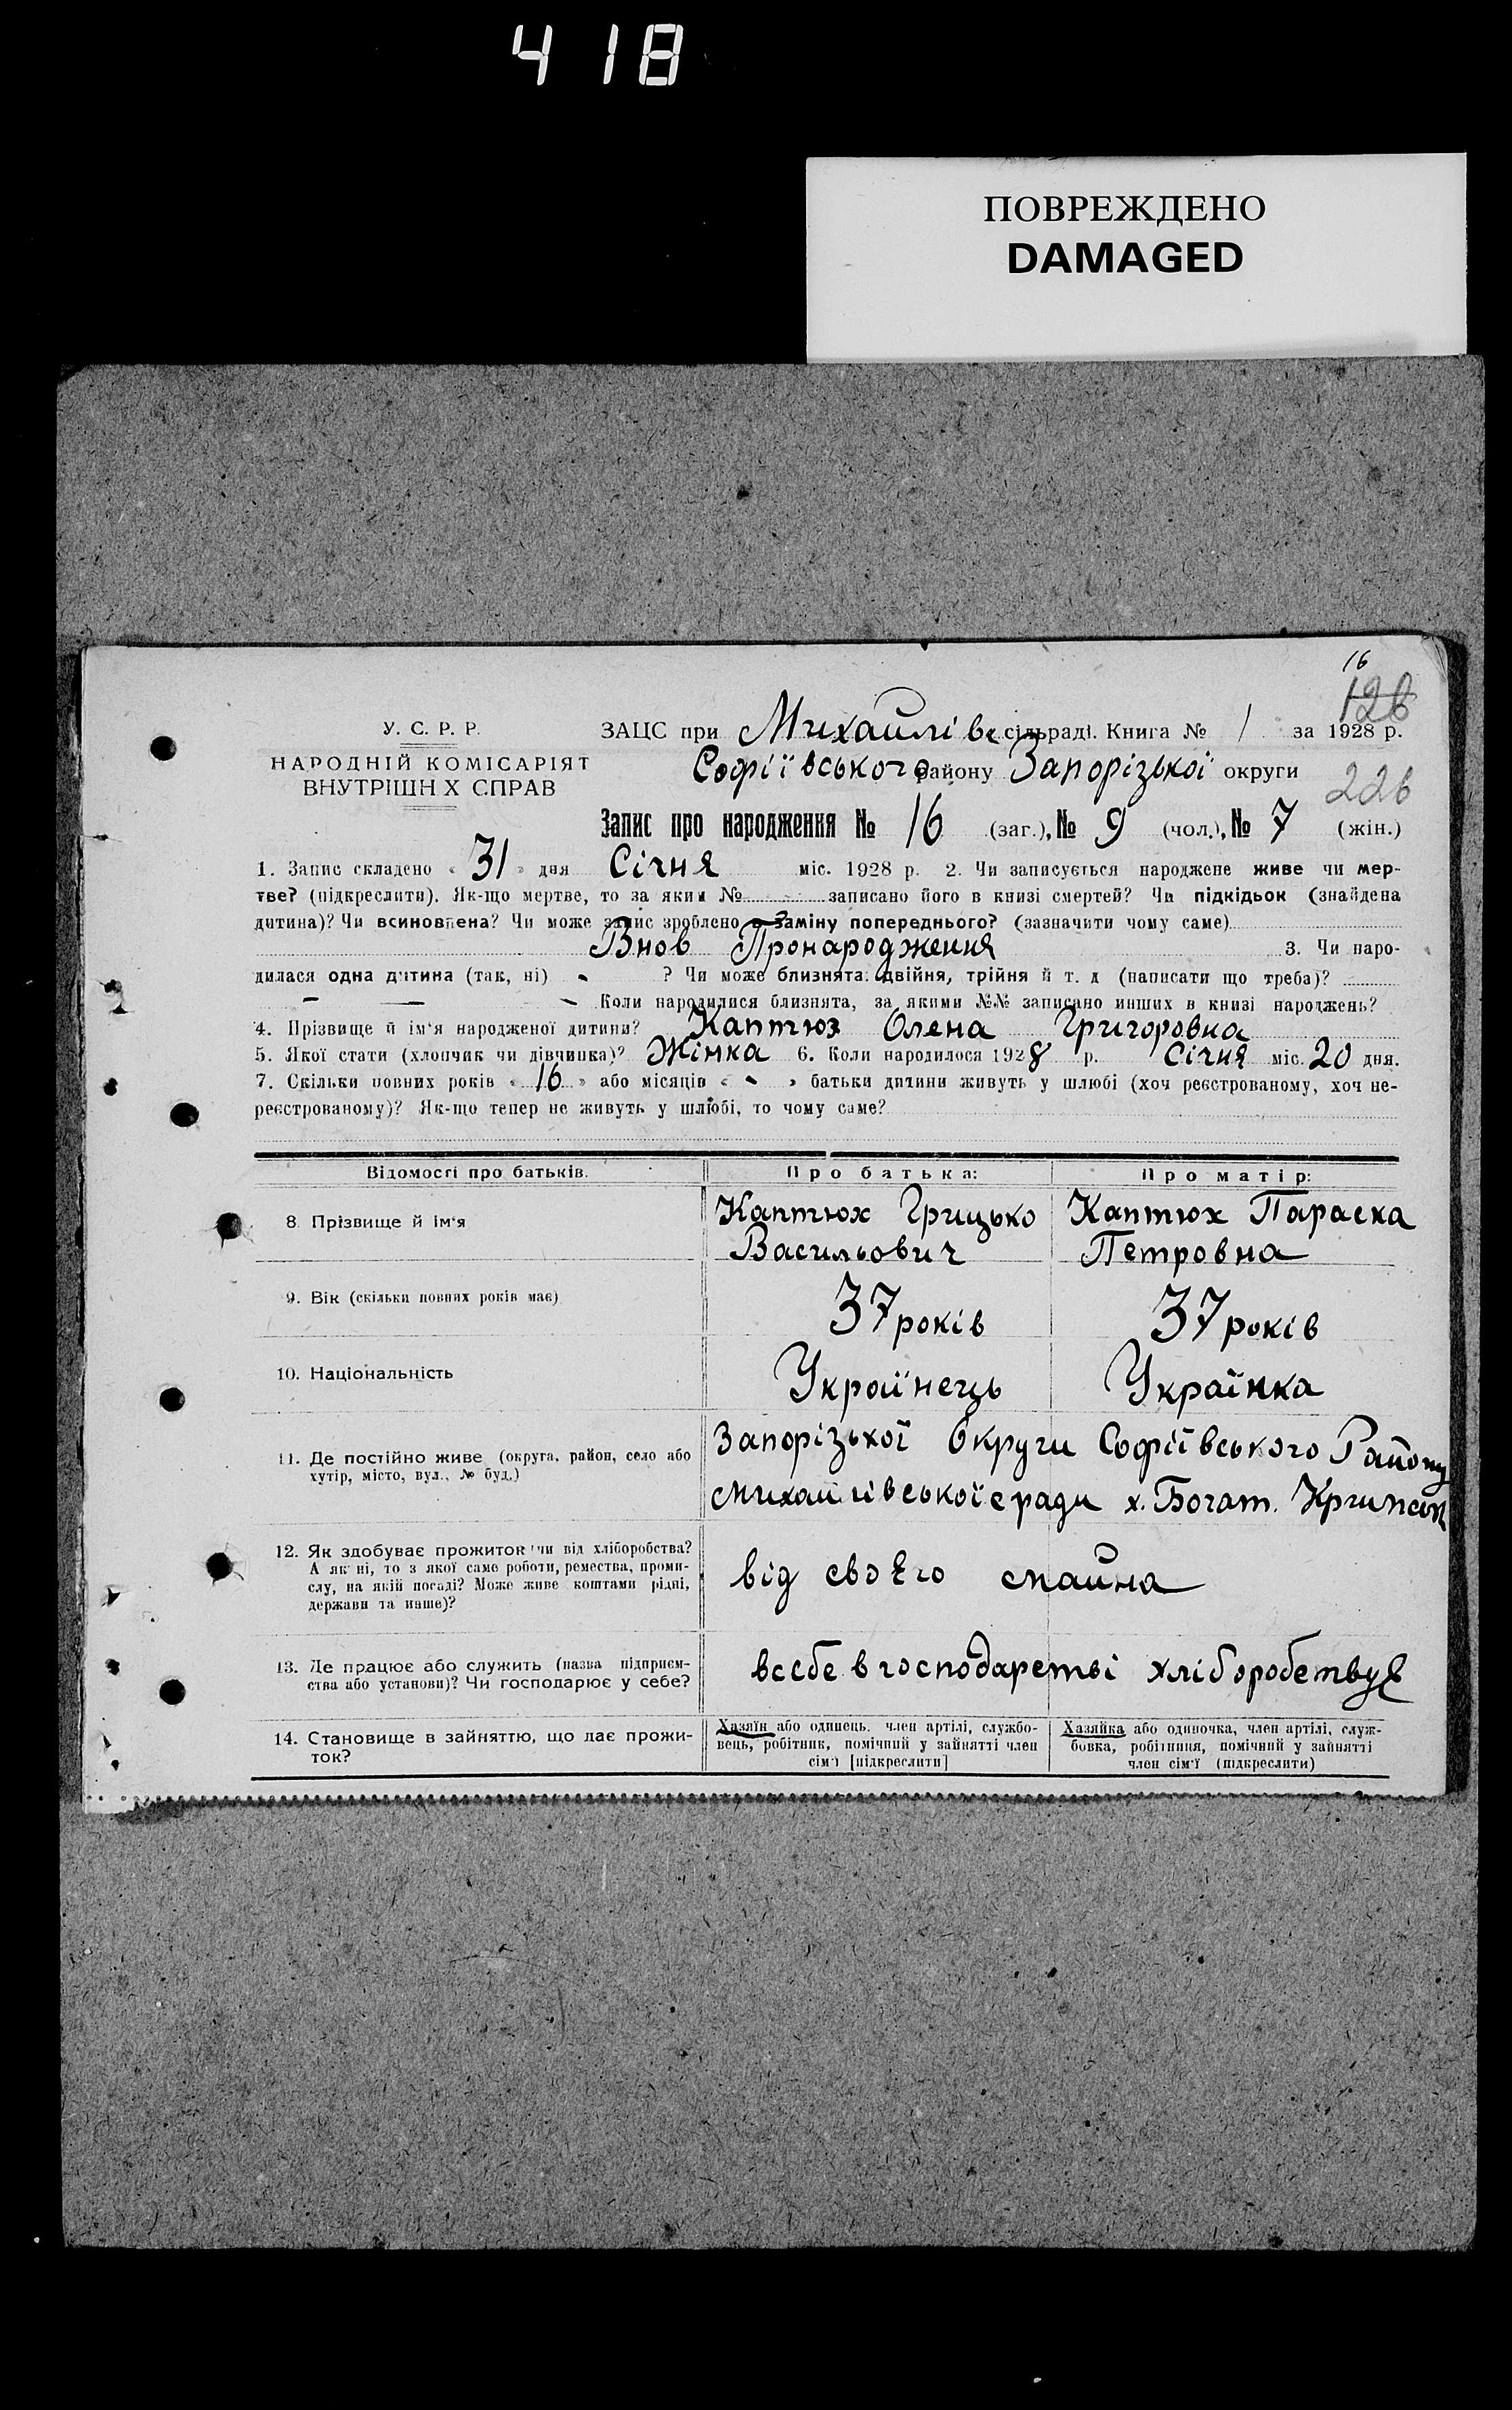 418
ПОВРЕЖДЕНО
DAMAGED
16
126
У. С. Р. Р.
НАРОДНІЙ КОМІСАРІЯТ
ВНУТРІШН Х СПРАВ
ЗАЦС при Михайлівс сільраді. Книга № 1 за 1928 р.
Софіївського району Запорізької округи
226
Запис про народження № 16 (заг.), № 9 (чол.), № 7 (жін.)
1. Запис складено « 31 » дня Січня міс. 1928 р. 2. Чи записується народжене живе чи мер-
тве? (підкреслити). Як-що мертве, то за яким № записано його в книзі смертей? Чи підкідьок (знайдена
дитина)? Чи всиновлена? Чи може запис зроблено в заміну попереднього? (зазначити чому саме)
Внов Пронародження 3. Чи наро-
дилася одна дитина (так, ні) - ? Чи може близнята: двійня, трійня й т. д (написати що треба)?
— — - Коли народилися близнята, за якими №№ записано инших в книзі народжень?
4. Прізвище й ім'я народженої дитини? Каптюх Олена Григоровна
5. Якої стати (хлопчик чи дівчинка)? Жінка 6. Коли народилося 1928 р. Січня міс. 20 дня.
7. Скільки повних років « 16 » або місяців « - » батьки дитини живуть у шлюбі (хоч реєстрованому, хоч не-
реєстрованому)? Як-що тепер не живуть у шлюбі, то чому саме?
Відомості про батьків. Про батька: Про матір:
8. Прізвище й ім'я Каптюх Грицько Каптюх Параска
Васильович Петровна
9. Вік (скільки повних років має) 37 років 37 років
10. Національність Українець Українка
11. Де постійно живе (округа, район, село або
хутір, місто, вул., № буд.)
Запорізької Округи Софіївського Району
Михайлівської с ради х. Богат.
12. Як здобуває прожиток (чи від хліборобства?
А як ні, то з якої саме роботи, ремества, проми-
слу, на якій посаді? Може живе коштами рідні,
держави та инше)?
від своєго майна
13. Де працює або служить (назва підприєм-
ства або установи)? Чи господарює у себе?
всебе в господарстві хліборобствує
14. Становище в зайняттю, що дає прожи-
ток?
Хазяїн або одинець, член артілі, службо-
вець, робітник, помічний у зайнятті член
сім'ї [підкреслити]
Хазяйка або одиночка, член артілі, служ-
бовка, робітниця, помічний у зайнятті
член сім'ї (підкреслити)